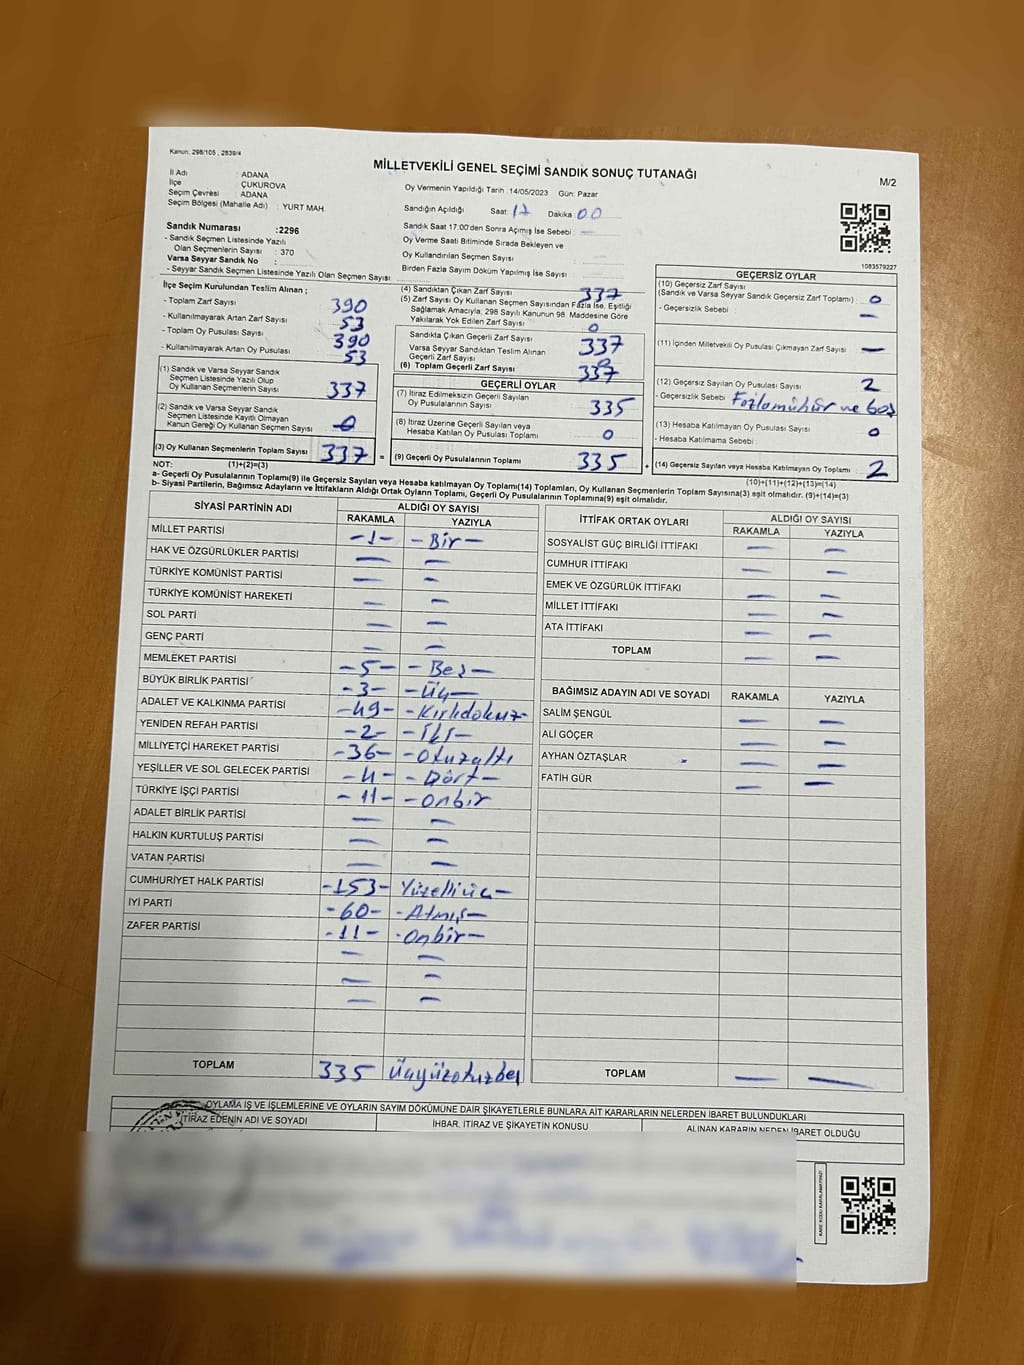 Kanun, 298/105 , 2839/4
MİLLETVEKİLİ GENEL SEÇİMİ SANDIK SONUÇ TUTANAĞI
M/2
İl Adı : ADANA
İlçe : ÇUKUROVA
Seçim Çevresi : ADANA
Seçim Bölgesi (Mahalle Adı) : YURT MAH.
Oy Vermenin Yapıldığı Tarih :14/05/2023 Gün: Pazar
Sandığın Açıldığı Saat: 17 Dakika 00
Sandık Saat 17:00'den Sonra Açımış İse Sebebi : —
Oy Verme Saati Bitiminde Sırada Bekleyen ve
Oy Kullandırılan Seçmen Sayısı : —
Birden Fazla Sayım Döküm Yapılmış İse Sayısı
1083579227
Sandık Numarası :2296
- Sandık Seçmen Listesinde Yazılı
Olan Seçmenlerin Sayısı : 370
Varsa Seyyar Sandık No :
- Seyyar Sandık Seçmen Listesinde Yazılı Olan Seçmen Sayısı:
İlçe Seçim Kurulundan Teslim Alınan ;
- Toplam Zarf Sayısı 390
- Kullanılmayarak Artan Zarf Sayısı : 53
- Toplam Oy Pusulası Sayısı : 390
- Kullanılmayarak Artan Oy Pusulası 53
(1) Sandık ve Varsa Seyyar Sandık
Seçmen Listesinde Yazılı Olup
Oy Kullanan Seçmenlerin Sayısı 337
(2) Sandık ve Varsa Seyyar Sandık
Seçmen Listesinde Kayıtlı Olmayan
Kanun Gereği Oy Kullanan Seçmen Sayısı 0
(3) Oy Kullanan Seçmenlerin Toplam Sayısı 337 =
(1)+(2)=(3)
(4) Sandıktan Çıkan Zarf Sayısı : 337
(5) Zarf Sayısı Oy Kullanan Seçmen Sayısından Fazla İse, Eşitliği
Sağlamak Amacıyla; 298 Sayılı Kanunun 98. Maddesine Göre
Yakılarak Yok Edilen Zarf Sayısı 0
Sandıkta Çıkan Geçerli Zarf Sayısı : 337
Varsa Seyyar Sandıktan Teslim Alınan
Geçerli Zarf Sayısı 0
(6) Toplam Geçerli Zarf Sayısı 337
GEÇERLİ OYLAR
(7) İtiraz Edilmeksizin Geçerli Sayılan
Oy Pusulalarının Sayısı 335
(8) İtiraz Üzerine Geçerli Sayılan veya
Hesaba Katılan Oy Pusulası Toplamı 0
(9) Geçerli Oy Pusulalarının Toplamı 335 +
GEÇERSİZ OYLAR
(10) Geçersiz Zarf Sayısı
(Sandık ve Varsa Seyyar Sandık Geçersiz Zarf Toplamı) : 0
- Geçersizlik Sebebi —
(11) İçinden Milletvekili Oy Pusulası Çıkmayan Zarf Sayısı —
(12) Geçersiz Sayılan Oy Pusulası Sayısı 2
- Geçersizlik Sebebi Fazlamühür ve boş
(13) Hesaba Katılmayan Oy Pusulası Sayısı 0
- Hesaba Katılmama Sebebi
(14) Geçersiz Sayılan veya Hesaba Katılmayan Oy Toplamı 2
(10)+(11)+(12)+(13)=(14)
NOT:
a- Geçerli Oy Pusulalarının Toplamı(9) ile Geçersiz Sayılan veya Hesaba Katılmayan Oy Toplamı(14) Toplamları, Oy Kullanan Seçmenlerin Toplam Sayısına(3) eşit olmalıdır. (9)+(14)=(3)
b- Siyasi Partilerin, Bağımsız Adayların ve İttifakların Aldığı Ortak Oyların Toplamı, Geçerli Oy Pusulalarının Toplamına(9) eşit olmalıdır.
SİYASİ PARTİNİN ADI ALDIĞI OY SAYISI
RAKAMLA YAZIYLA
MİLLET PARTİSİ -1- -Bir-
HAK VE ÖZGÜRLÜKLER PARTİSİ — —
TÜRKİYE KOMÜNİST PARTİSİ — —
TÜRKİYE KOMÜNİST HAREKETİ — —
SOL PARTİ — —
GENÇ PARTİ — —
MEMLEKET PARTİSİ -5- -Beş-
BÜYÜK BİRLİK PARTİSİ -3- -Üç-
ADALET VE KALKINMA PARTİSİ -49- -Kırkdokuz-
YENİDEN REFAH PARTİSİ -2- -İki-
MİLLİYETÇİ HAREKET PARTİSİ -36- -Otuzaltı
YEŞİLLER VE SOL GELECEK PARTİSİ -4- -Dört-
TÜRKİYE İŞÇİ PARTİSİ -11- -onbir
ADALET BİRLİK PARTİSİ — —
HALKIN KURTULUŞ PARTİSİ — —
VATAN PARTİSİ — —
CUMHURİYET HALK PARTİSİ -153- Yüzelliüç-
İYİ PARTİ -60- -Atmış-
ZAFER PARTİSİ -11- -Onbir-
— —
— —
— —
TOPLAM 335 Üçyüzotuzbeş
İTTİFAK ORTAK OYLARI ALDIĞI OY SAYISI
RAKAMLA YAZIYLA
SOSYALİST GÜÇ BİRLİĞİ İTTİFAKI — —
CUMHUR İTTİFAKI — —
EMEK VE ÖZGÜRLÜK İTTİFAKI — —
MİLLET İTTİFAKI — —
ATA İTTİFAKI — —
TOPLAM — —
BAĞIMSIZ ADAYIN ADI VE SOYADI RAKAMLA YAZIYLA
SALİM ŞENGÜL — —
ALİ GÖÇER — —
AYHAN ÖZTAŞLAR — —
FATİH GÜR — —
TOPLAM — —
OYLAMA İŞ VE İŞLEMLERİNE VE OYLARIN SAYIM DÖKÜMÜNE DAİR ŞİKAYETLERLE BUNLARA AİT KARARLARIN NELERDEN İBARET BULUNDUKLARI
İTİRAZ EDENİN ADI VE SOYADI İHBAR, İTİRAZ VE ŞİKAYETİN KONUSU ALINAN KARARIN NEDEN İBARET OLDUĞU
KARE KODU KARALAMAYINIZ!